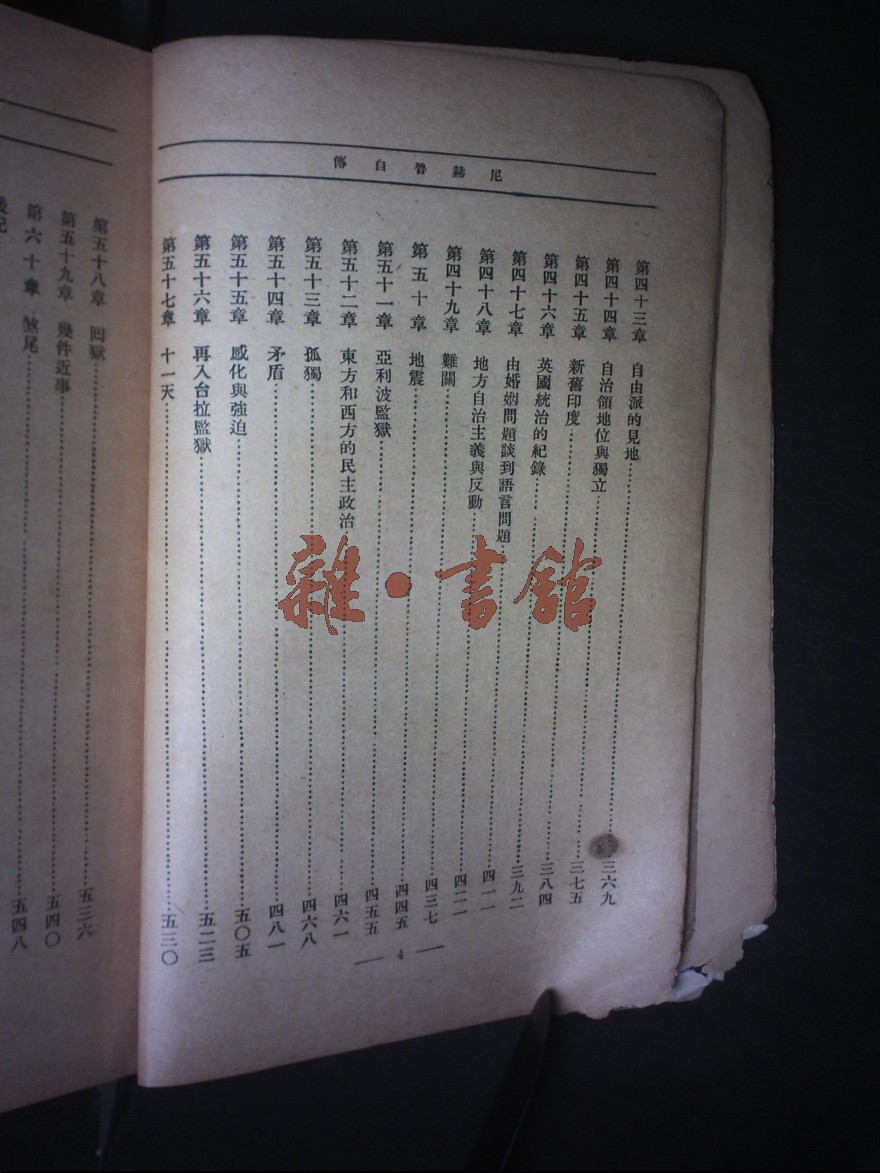 尼赫魯自傳
第四十三章 自由派的見地……三六九
第四十四章 自治領地位與獨立……三七五
第四十五章 新舊印度……三八四
第四十六章 英國統治的紀錄……三九二
第四十七章 由婚姻問題談到語言問題……四一一
第四十八章 地方自治主義與反動……四二一
第四十九章 難關……四三七
第五十章 地震……四四五
第五十一章 亞利波監獄……四五五
第五十二章 東方和西方的民主政治……四六一
第五十三章 孤獨……四六八
第五十四章 矛盾……四八一
第五十五章 感化與強迫……五〇五
第五十六章 再入台拉監獄……五二三
第五十七章 十一天……五三〇
— 4 —
第五十八章 回獄……五三六
第五十九章 幾件近事……五四〇
第六十章 煞尾……五四八
雜·書館